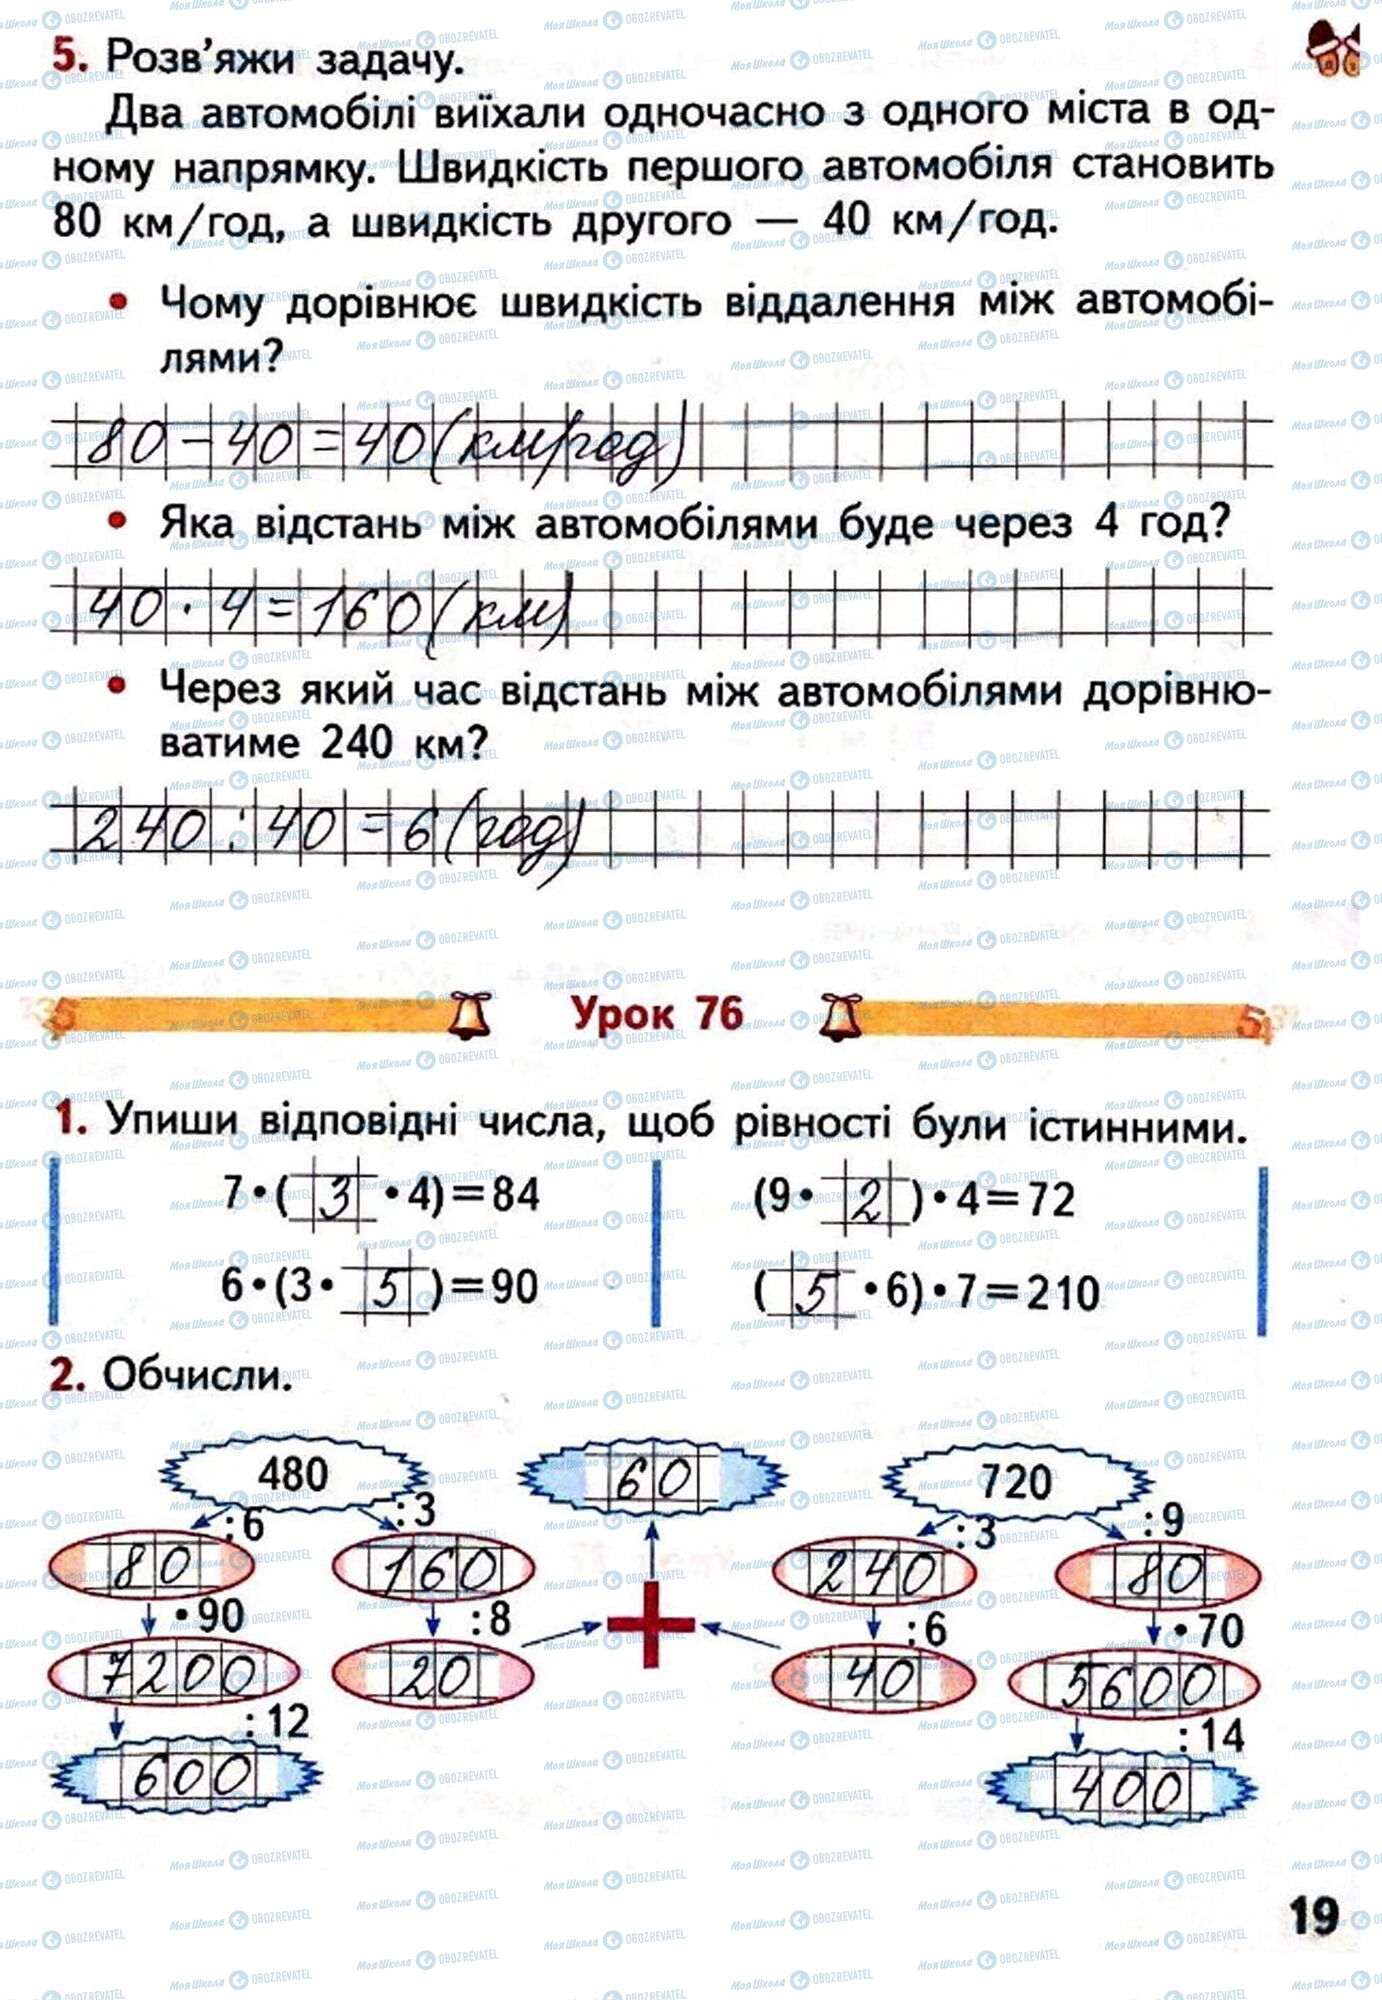 5. Розв’яжи задачу.
Два автомобілі виїхали одночасно з одного міста в од-
ному напрямку. Швидкість першого автомобіля становить
80 км/год, а швидкість другого — 40 км/год.
• Чому дорівнює швидкість віддалення між автомобі-
лями?
80 - 40 = 40 (км/год)
• Яка відстань між автомобілями буде через 4 год?
40 · 4 = 160 (км)
• Через який час відстань між автомобілями дорівню-
ватиме 240 км?
240 : 40 = 6 (год)
Урок 76
1. Упиши відповідні числа, щоб рівності були істинними.
7 • ( 3 • 4) = 84 (9 • 2 ) • 4 = 72
6 • (3 • 5 ) = 90 ( 5 • 6) • 7 = 210
2. Обчисли.
480 60 720
:6 :3 :3 :9
80 160 240 80
•90 :8 :6 •70
7200 20 40 5600
:12 :14
600 400
19
МояШкола OBOZREVATEL